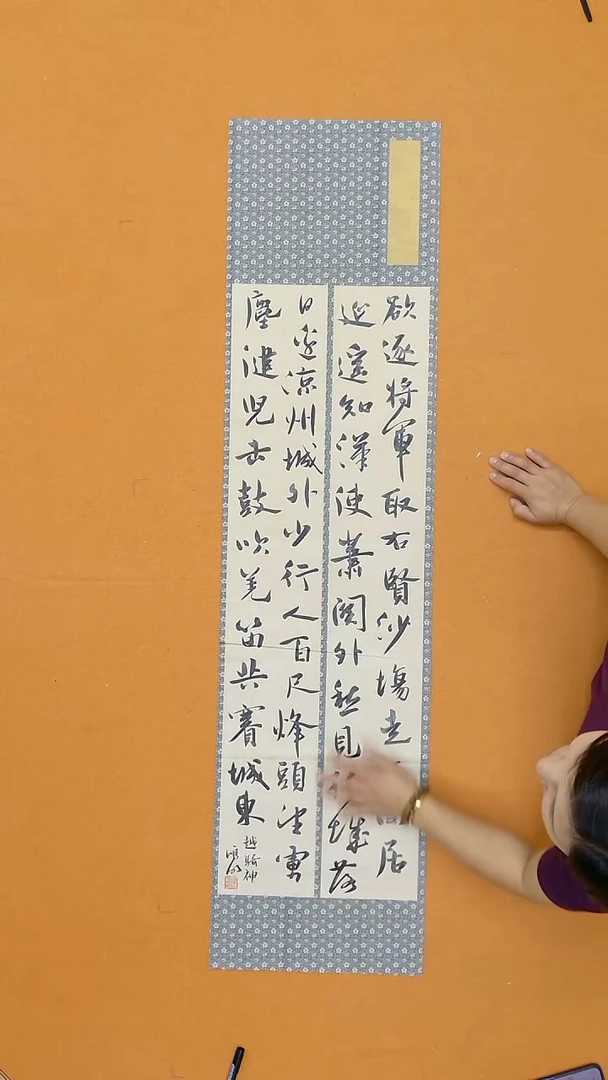 欲逐将軍取右賢沙塲走居
延遥知漢使蕭関外愁見城落
日邊涼州城外少行人百尺烽頭望虜
塵健児击鼓吹羌笛共賽城東
越騎神